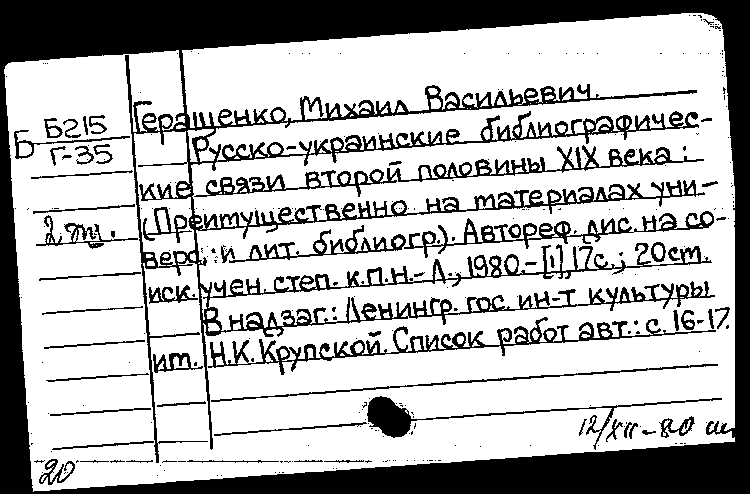 Геращенко, Михаил Васильевич.
Б Б215
Г-35
Русско-украинские библиографичес-
кие связи второй половины XIX века:
(Преимущественно на материалах уни-
2 эт.
верс. и лит. библиогр.). Автореф. дис. на со-
иск. учен. степ. к.п.н. - Л., 1980. - [1], 17с.; 20см.
В надзаг.: Ленингр. гос. ин-т культуры
им. Н.К. Крупской. Список работ авт.: с. 16-17.
12/XII-80
20